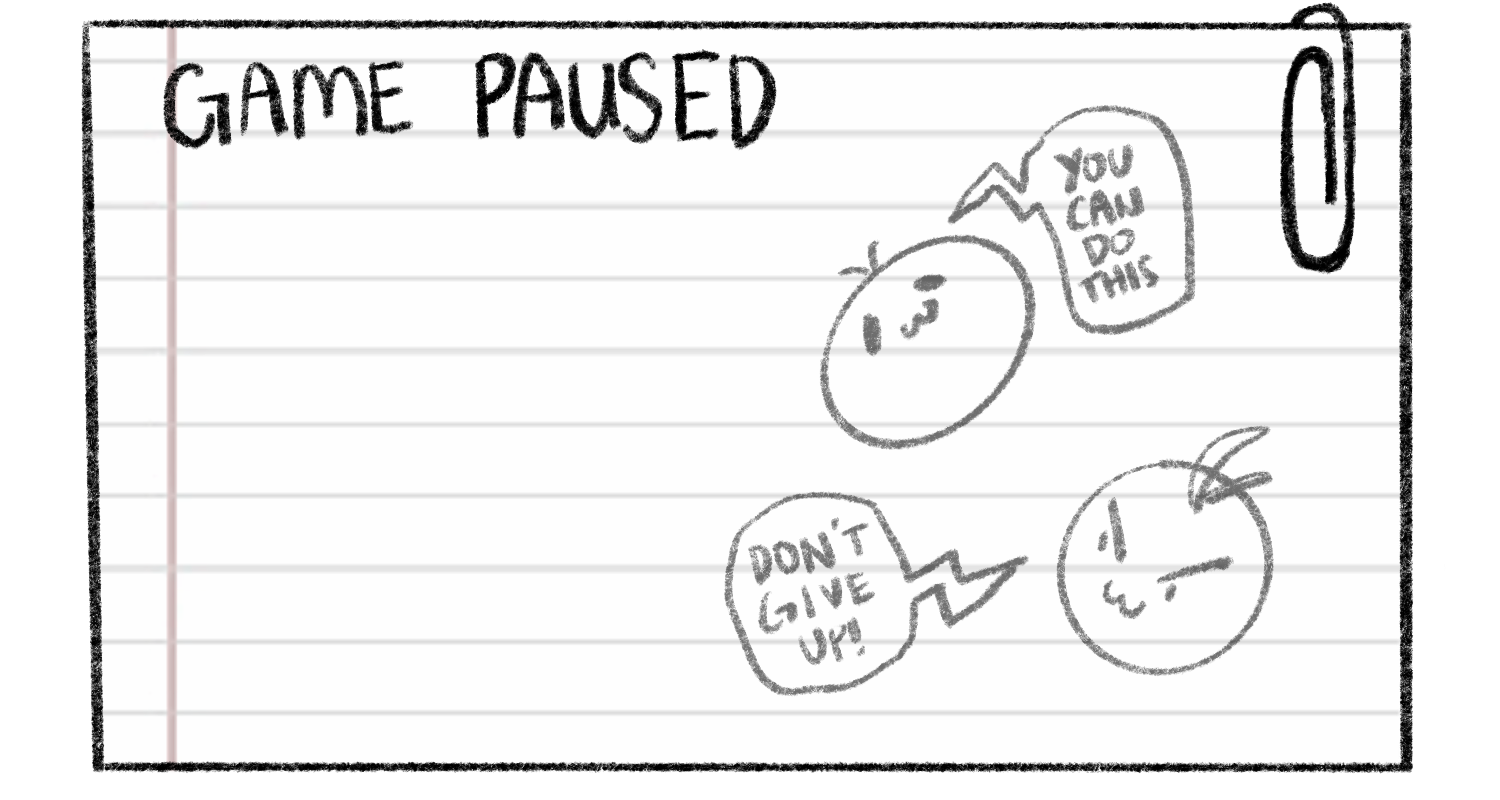 GAME PAUSED
YOU
CAN
DO
THIS
DON'T
GIVE
UP!